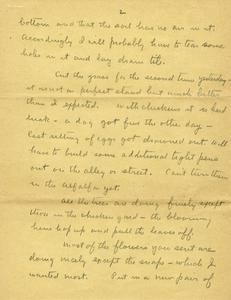 2
bottom and that the soil has no air in it.
Accordingly I will probably have to tear some
holes in it and lay drain tile.
Cut the grass for the second time yesterday -
it is not a perfect stand but much better
than I expected. With chickens it is hard
luck - a dog got five the other day -
last setting of eggs got drowned out. Will
have to build some additional tight pens
out on the alley or street. Can't turn them
in the alfalfa yet.
All the trees are doing finely except
those in the chicken yard - the blooming
hens hop up and pull the leaves off.
Most of the flowers you sent are
doing nicely except the snaps - which I
wanted most. Put in a new pair of